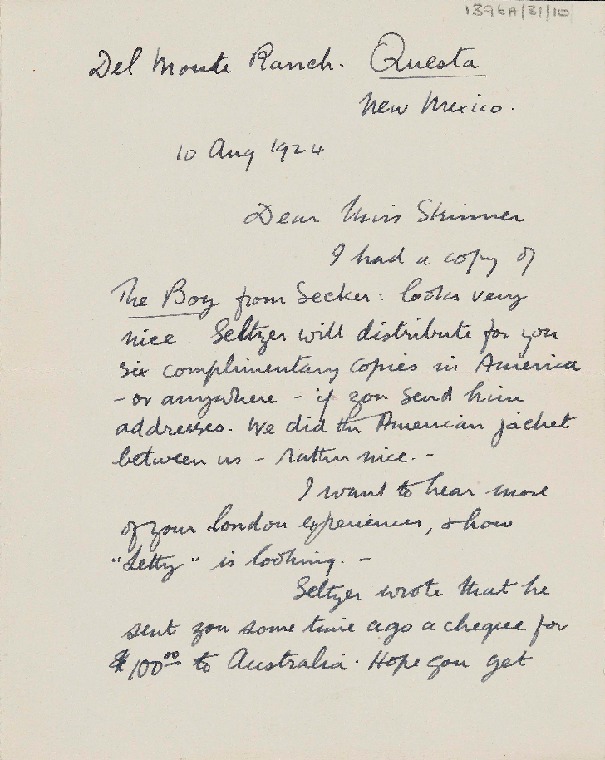 1396A/31/10
Del Monte Ranch. Questa
New Mexico.
10 Aug 1924
Dear Miss Skinner
I had a copy of
The Boy from Secker: looks very
nice Seltzer will distribute for you
six complimentary copies in America
- or anywhere - if you send him
addresses. We did the American jacket
between us - rather nice. -
I want to hear more
of your London experiences, & how
"Letty" is looking. -
Seltzer wrote that he
sent you some time ago a cheque for
$100.00 to Australia. Hope you get